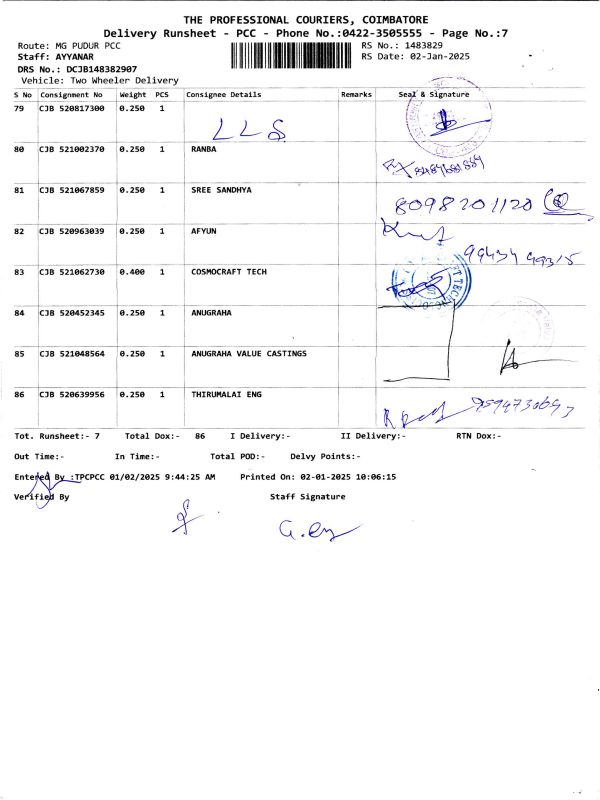 THE PROFESSIONAL COURIERS, COIMBATORE
Delivery Runsheet - PCC - Phone No.:0422-3505555 - Page No.:7
Route: MG PUDUR PCC RS No.: 1483829
Staff: AYYANAR RS Date: 02-Jan-2025
DRS No.: DCJB148382907
Vehicle: Two Wheeler Delivery
S No Consignment No Weight PCS Consignee Details Remarks Seal & Signature
79 CJB 520817300 0.250 1
LLS
80 CJB 521002370 0.250 1 RANBA
81 CJB 521067859 0.250 1 SREE SANDHYA
8098201120
82 CJB 520963039 0.250 1 AFYUN
99434 49315
83 CJB 521062730 0.400 1 COSMOCRAFT TECH
84 CJB 520452345 0.250 1 ANUGRAHA
85 CJB 521048564 0.250 1 ANUGRAHA VALUE CASTINGS
86 CJB 520639956 0.250 1 THIRUMALAI ENG
Tot. Runsheet:- 7 Total Dox:- 86 I Delivery:- II Delivery:- RTN Dox:-
Out Time:- In Time:- Total POD:- Delvy Points:-
Entered By :TPCPCC 01/02/2025 9:44:25 AM Printed On: 02-01-2025 10:06:15
Verified By Staff Signature